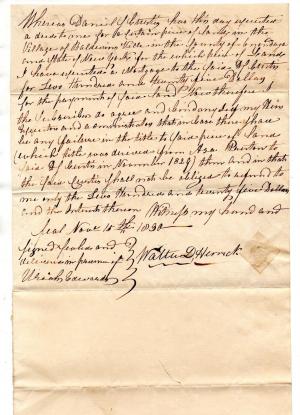 Whereas Daniel S. Curtis has this day executed
a deed to me for a certain piece of Land in the
Village of Baldwins Ville in the County of Onondaga
and State of New York for the which piece of Land
I have executed a Mortgage to the said D. Curtis
for Two Hundred and Seventy five Dollars
for the payment of said Land Now therefore I
the Subscriber do agree and bond and my Heirs
Executors and administrators that in case there shall
be any failure in the title to Said piece of Land
(which title was derived from Asa to
Said D. Curtis in November 1829) then and in that
the Said Curtis Shall not be obliged to refund to
me only the Two Hundred and Seventy five Dollars
and the Interest thereon Witness my hand and
Seal Nov 10th 1830
Signed Sealed and
delivered in presence of Walter D Herrick
Uriah Edwards